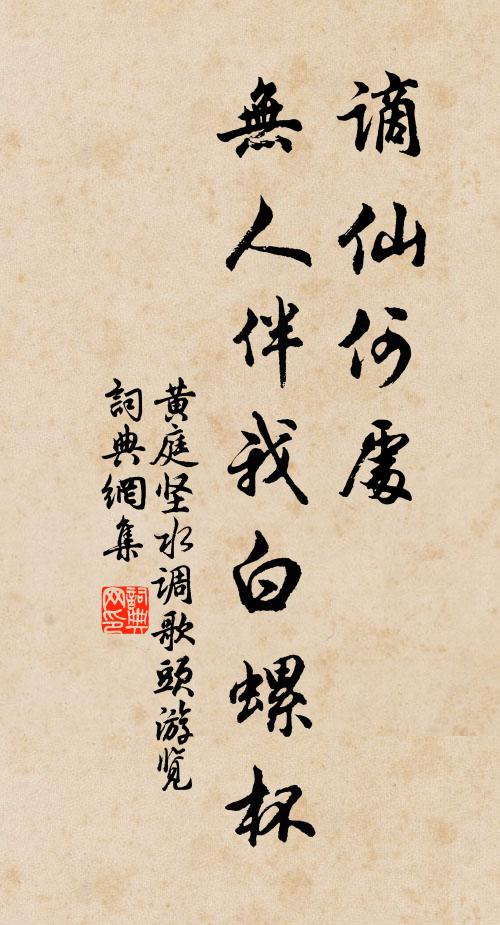 謫仙何處
無人伴我白螺杯
黄庭坚水调歌頭游览
詞典網集
詞典网印